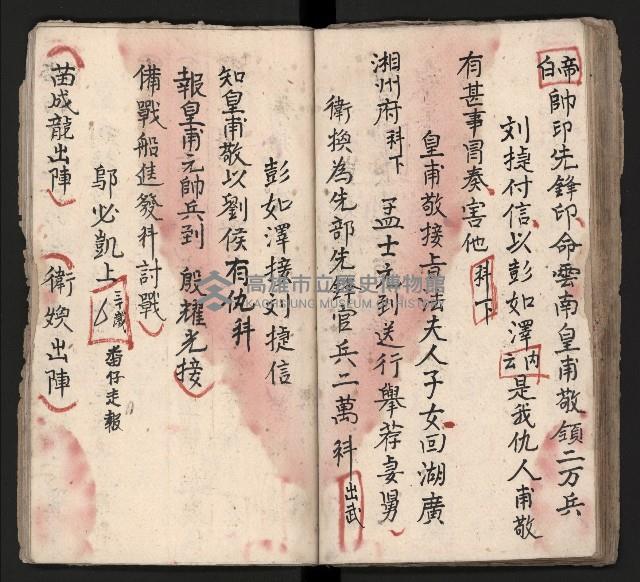 帝白 帥印先鋒印命雲南皇甫敬領二万兵
刘捷付信以彭如澤内云是我仇人甫敬
有甚事冐奏害他 科下
皇甫敬接旨 法夫人子女回湖廣
湘州府科下 孟士元到送行舉荐妻舅
衛換為先部先 官兵二萬科 出武
彭如澤接刘捷信
知皇甫敬以劉侯有仇科
報皇甫元帥兵到 殷耀光接
備戰船進發科討戰
鄔必凱上 番仔走報
苗成龍出陣 衛煥出陣
高雄市立歷史博物館
KAOHSIUNG MUSEUM OF HISTORY